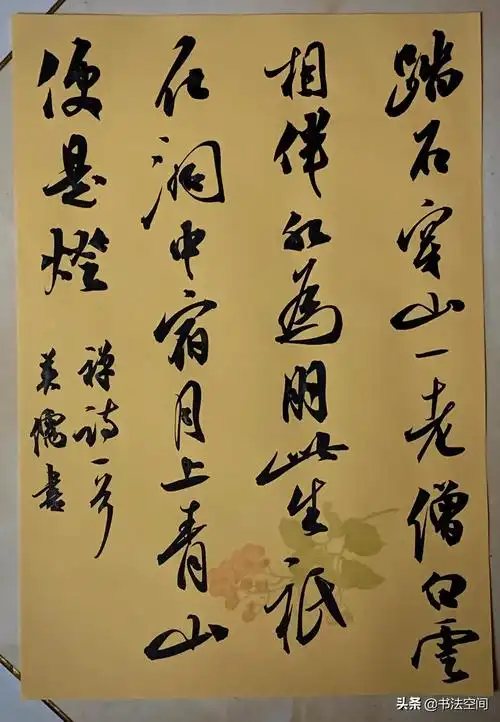 踏石穿山一老僧白雲
相伴水為朋此生祇
在洞中宿月上青山
便是燈
禪詩一首
儒書
头条 @书法空间